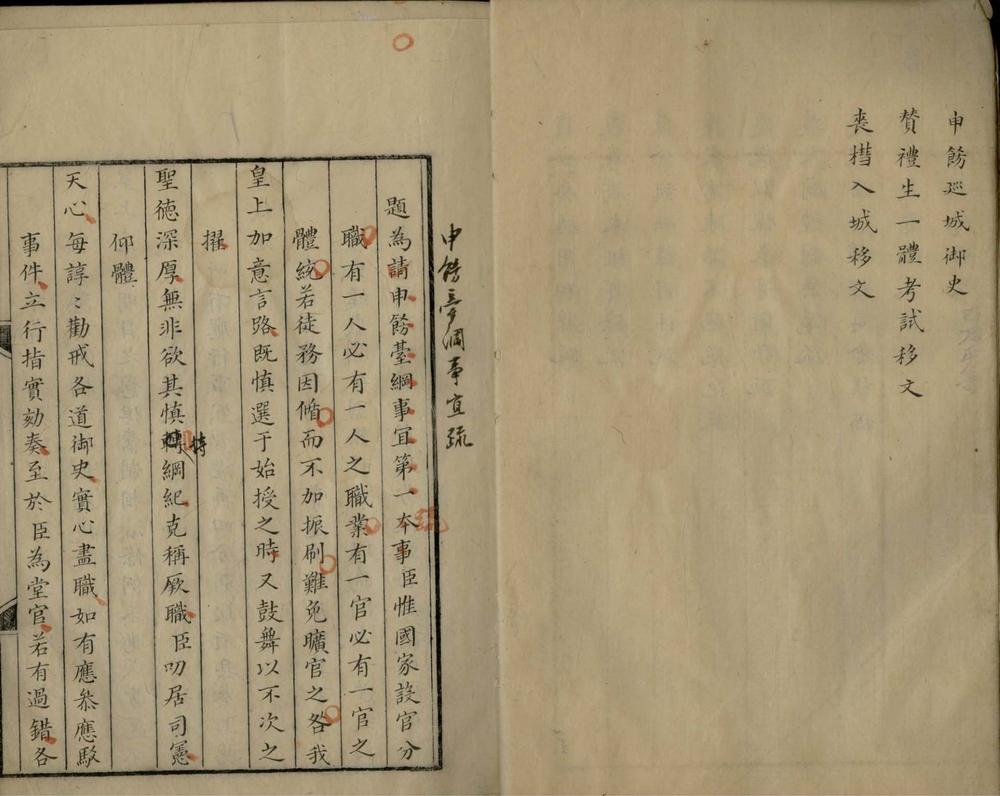 申飭巡城御史
贊禮生一體考試移文
喪櫘入城移文
申飭臺綱事宜疏
題為請申飭臺綱事宜第一本事臣惟國家設官分
職有一人必有一人之職業有一官必有一官之
體統若徒務因循而不加振刷難免曠官之咎我
皇上加意言路既慎選于始授之時又鼓舞以不次之
擢
聖德深厚無非欲其慎持綱紀克稱厥職臣叨居司憲
仰體
天心每諄〻勸戒各道御史實心盡職如有應叅應駁
事件立行指實劾奏至於臣為堂官若有過錯各